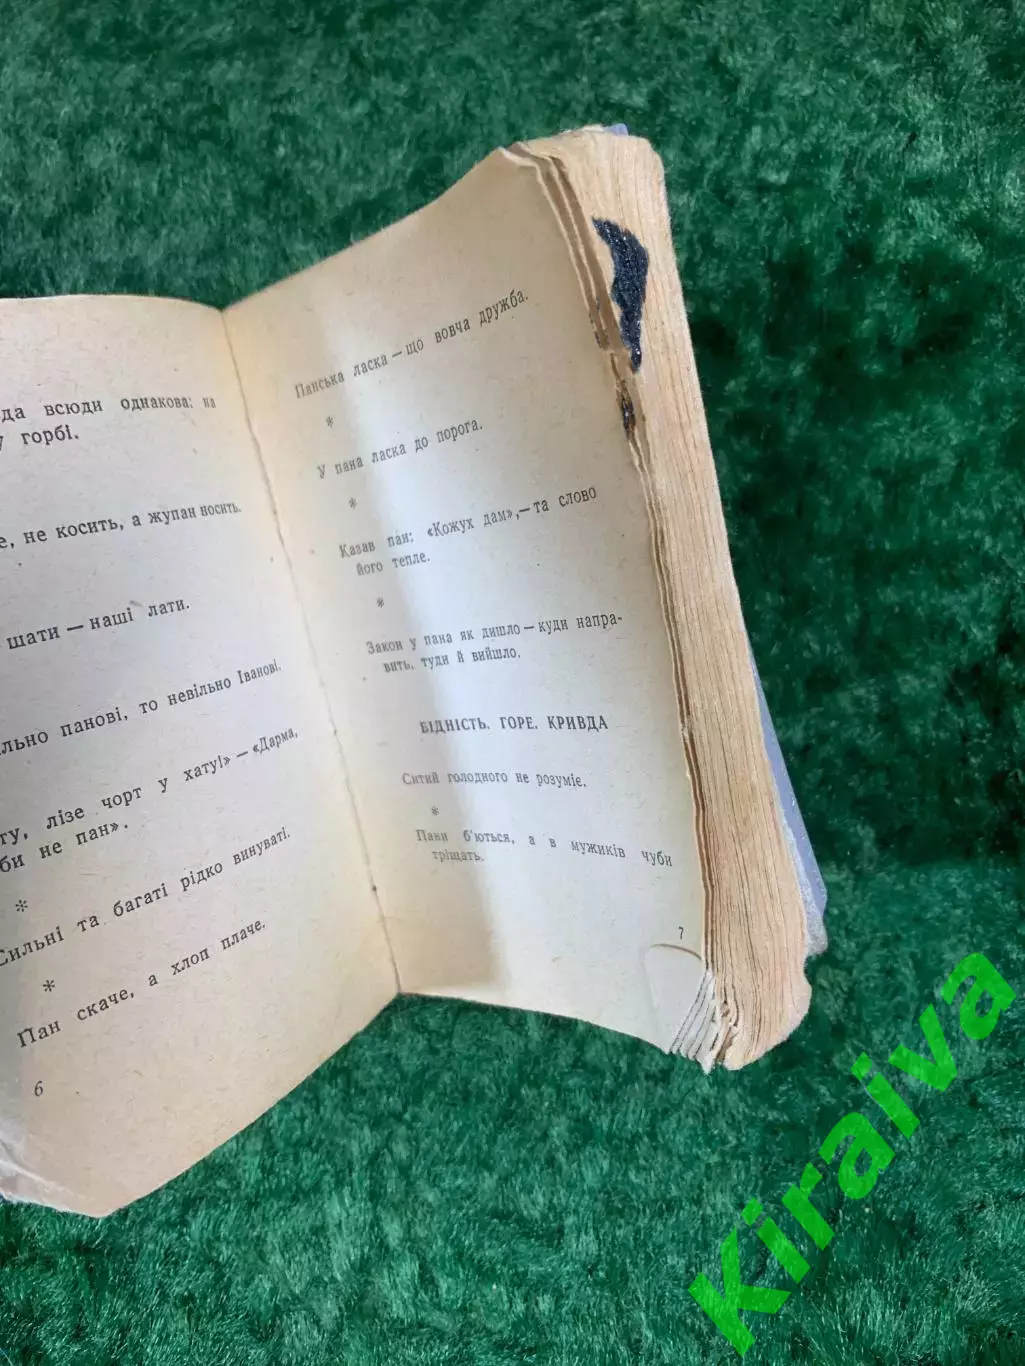 да всюди однакова: на
у горбі.
е, не косить, а жупан носить.
шати — наші лати.
льно панові, то невільно Іванові.
ту, лізе чорт у хату!» — «Дарма,
би не пан».
*
Сильні та багаті рідко винуваті.
*
Пан скаче, а хлоп плаче.
6
Панська ласка — що вовча дружба.
*
У пана ласка до порога.
*
Казав пан: «Кожух дам», — та слово
його тепле.
*
Закон у пана як дишло — куди напра-
вить, туди й вийшло.
БІДНІСТЬ. ГОРЕ. КРИВДА
Ситий голодного не розуміє.
*
Пани б'ються, а в мужиків чуби
тріщать.
7
Kiraiva